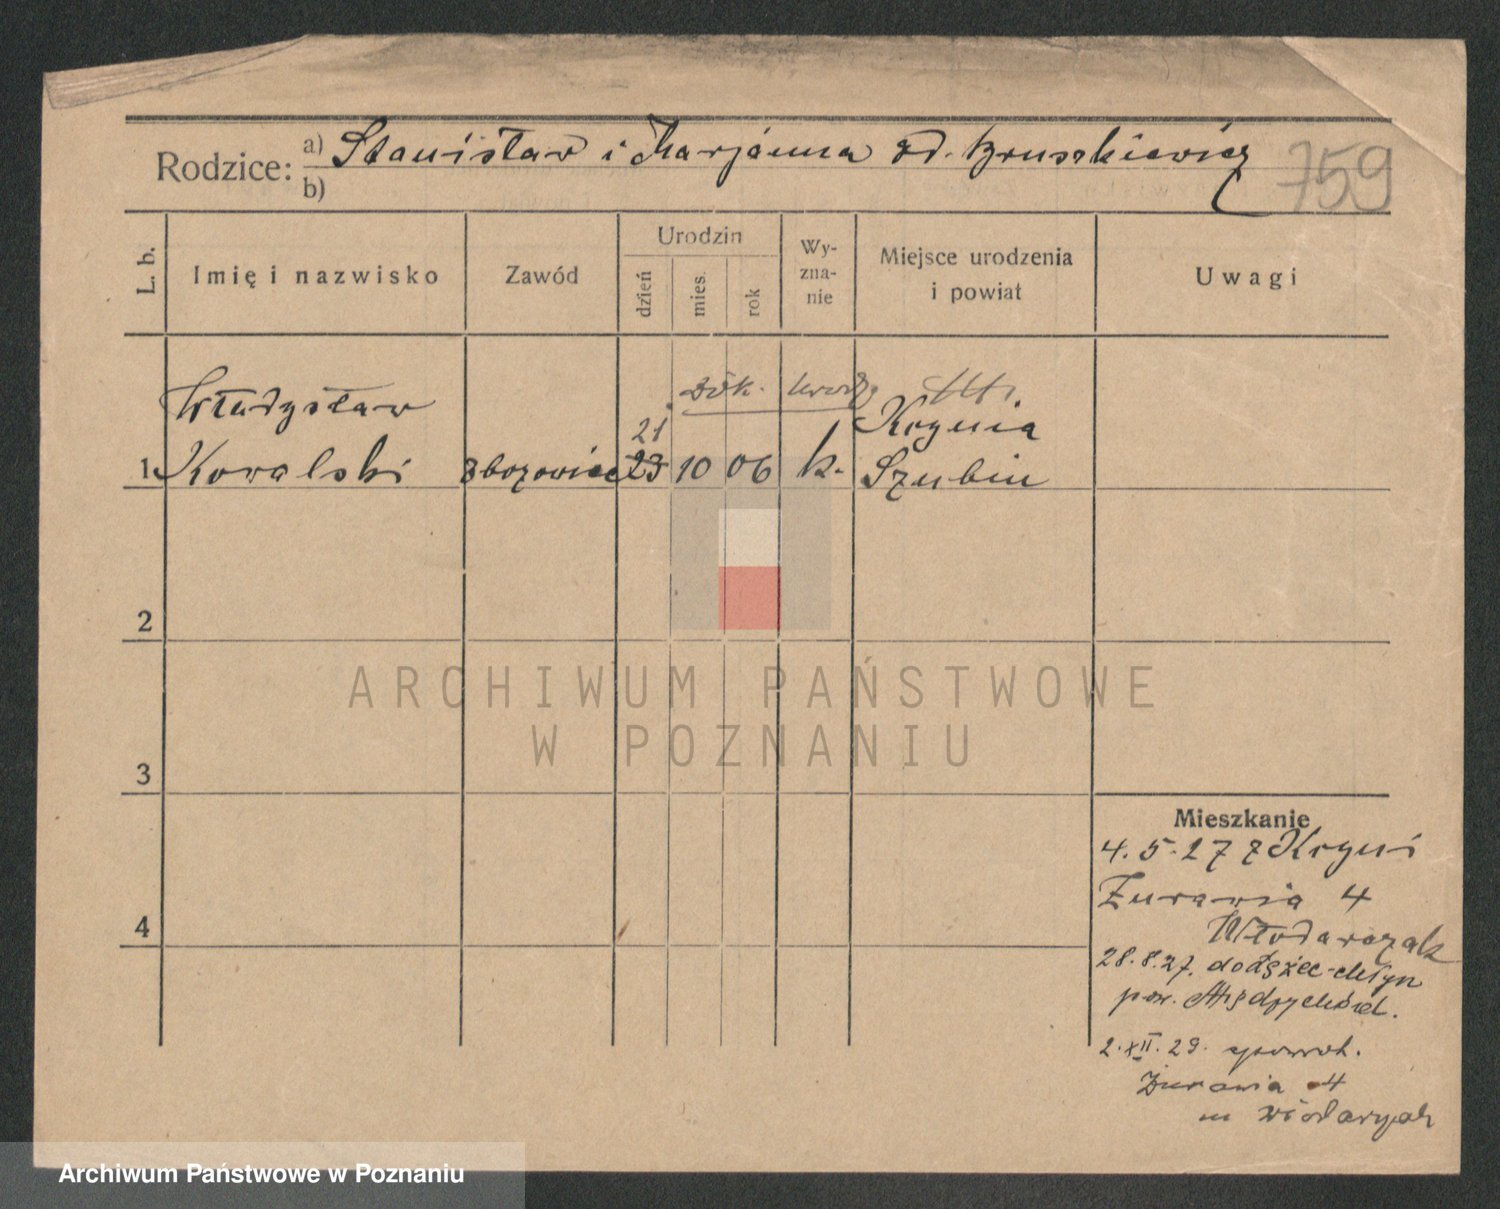 Rodzice:
a) Stanisław i Marjanna zd. Gruszkiewicz
b)
759
L. b.
Imię i nazwisko
Zawód
Urodzin
dzień
mies.
rok
Wy-
zna-
nie
Miejsce urodzenia
i powiat
Uwagi
Władysław
dok. urodz.
21
Kcynia
1 Kowalski
zbożowiec
23
10
06
k.
Szubin
2
ARCHIWUM PAŃSTWOWE
W POZNANIU
3
Mieszkanie
4.5.27 z Kcyni
Żurawia 4
4
Włodarczak
28.8.27. do Łężec-Młyn
pow. Międzychód.
2.XII.29.
Żurawia 4
Włodarczak
Archiwum Państwowe w Poznaniu